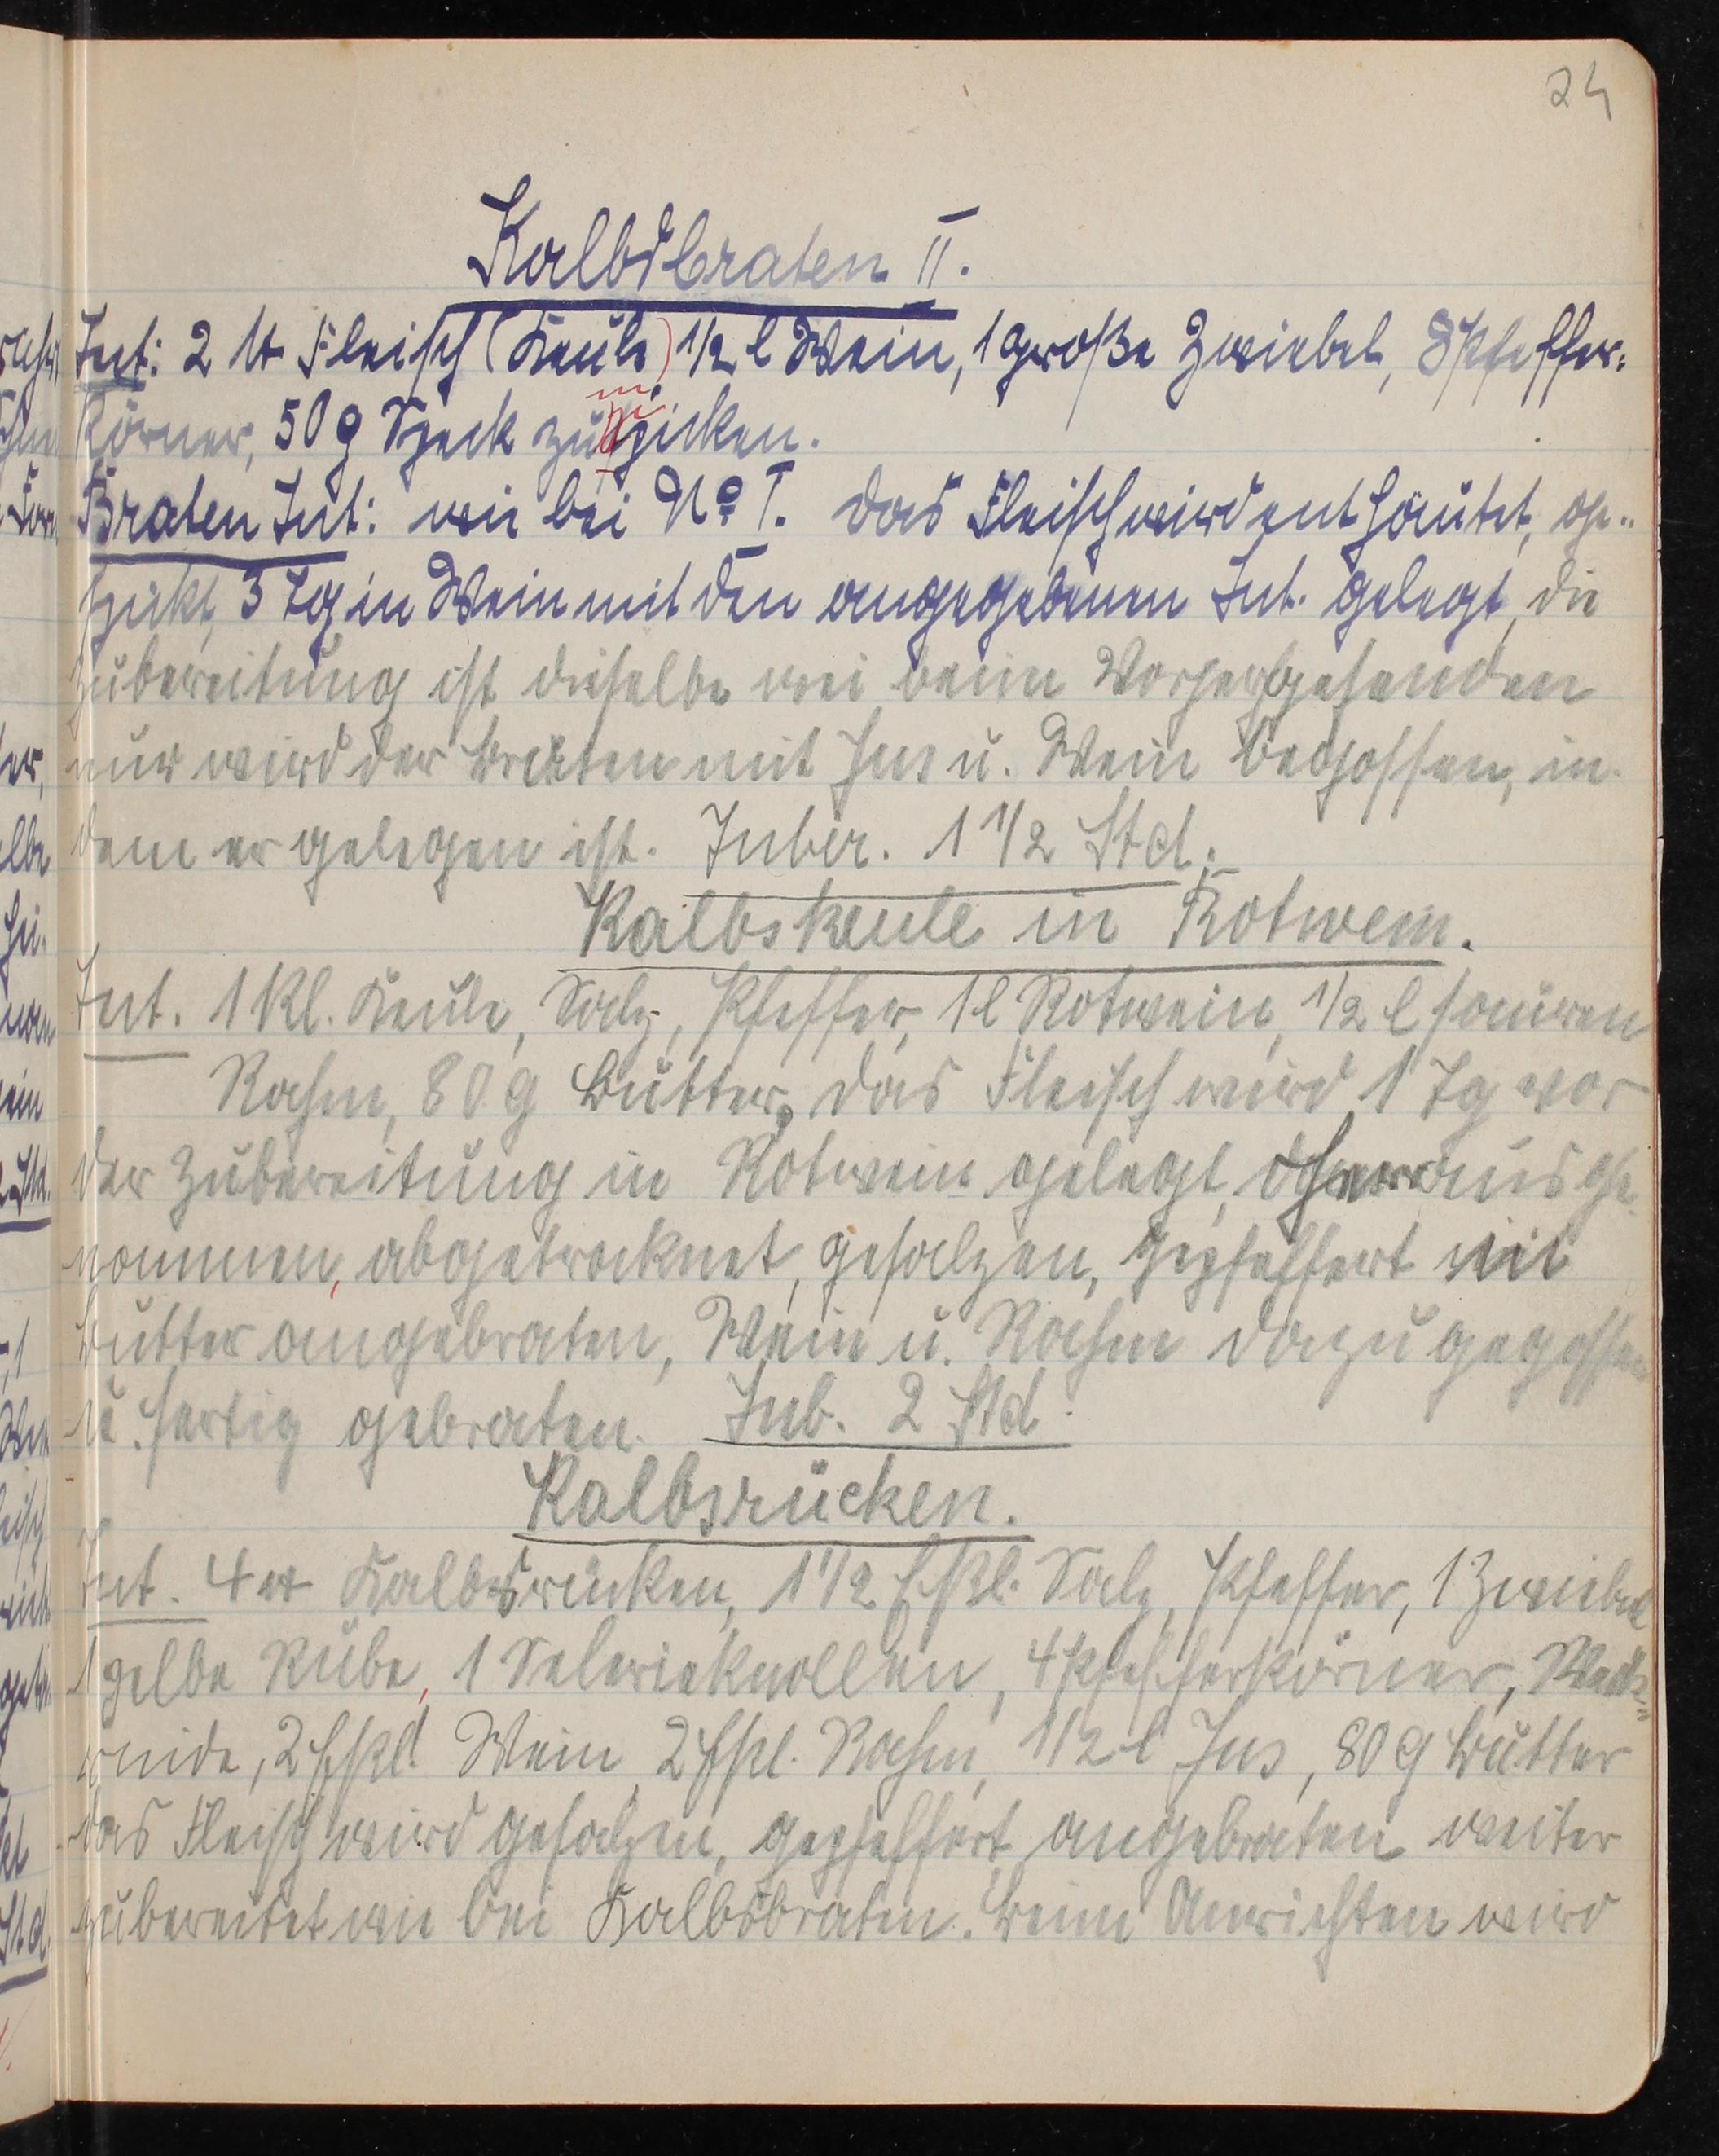 24
Kalbsbraten II.
Zut: 2 ℔ Fleisch (Keule) 1/2 l Wein, 1 große Zwiebel, 8 Pfeffer-
körner, 50 g Speck zum spicken.
Braten Zut: wie bei No I. das Fleisch wird enthäutet, ge-
spickt, 3 Tg in Wein mit den angegebenen Zut. gelegt, die
Zubereitung ist dieselbe wie beim Vorhergehenden
nur wird der Braten mit Jus u. Wein begossen, in
dem er gelegen ist. Zuber. 1 1/2 Std.
Kalbskeule in Rotwein.
Zut. 1 Kl. Keule, Salz, Pfeffer, 1 l Rotwein, 1/2 l sauren
Rahm, 80 g Butter, das Fleisch wird 1 Tg vor
der Zubereitung in Rotwein gelegt, herausge-
nommen, abgetrocknet, gesalzen, gepfeffert mit
Butter angebraten, Wein u. Rahm dazu gegossen
u. fertig gebraten. Zub. 2 Std.
Kalbsrücken.
Zut. 4 ℔ Kalbsrücken, 1 1/2 Eßl. Salz, Pfeffer, 1 Zwiebel
1 gelbe Rübe, 1 Selerieknollen, 4 Pfefferkörner, Weck-
rinde, 2 Eßl. Wein, 2 Eßl. Rahm, 1/2 l Jus, 80 g Butter
das Fleisch wird gesalzen, gepfeffert angebraten weiter
zubereitet wie bei Kalbsbraten. Beim Anrichten wird